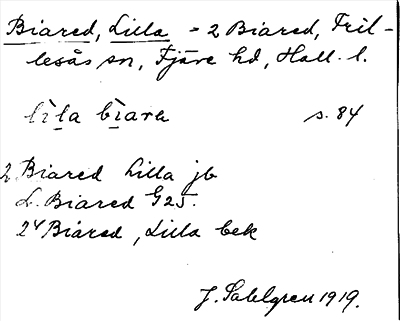 Biared, Lilla = 2 Biared, Fril-
lesås sn, Fjäre hd, Hall. l.
lìla bìara s. 84
2 Biared Lilla jb
L. Biared G25.
24 Biared, Lilla bek
J. Sahlgren 1919.